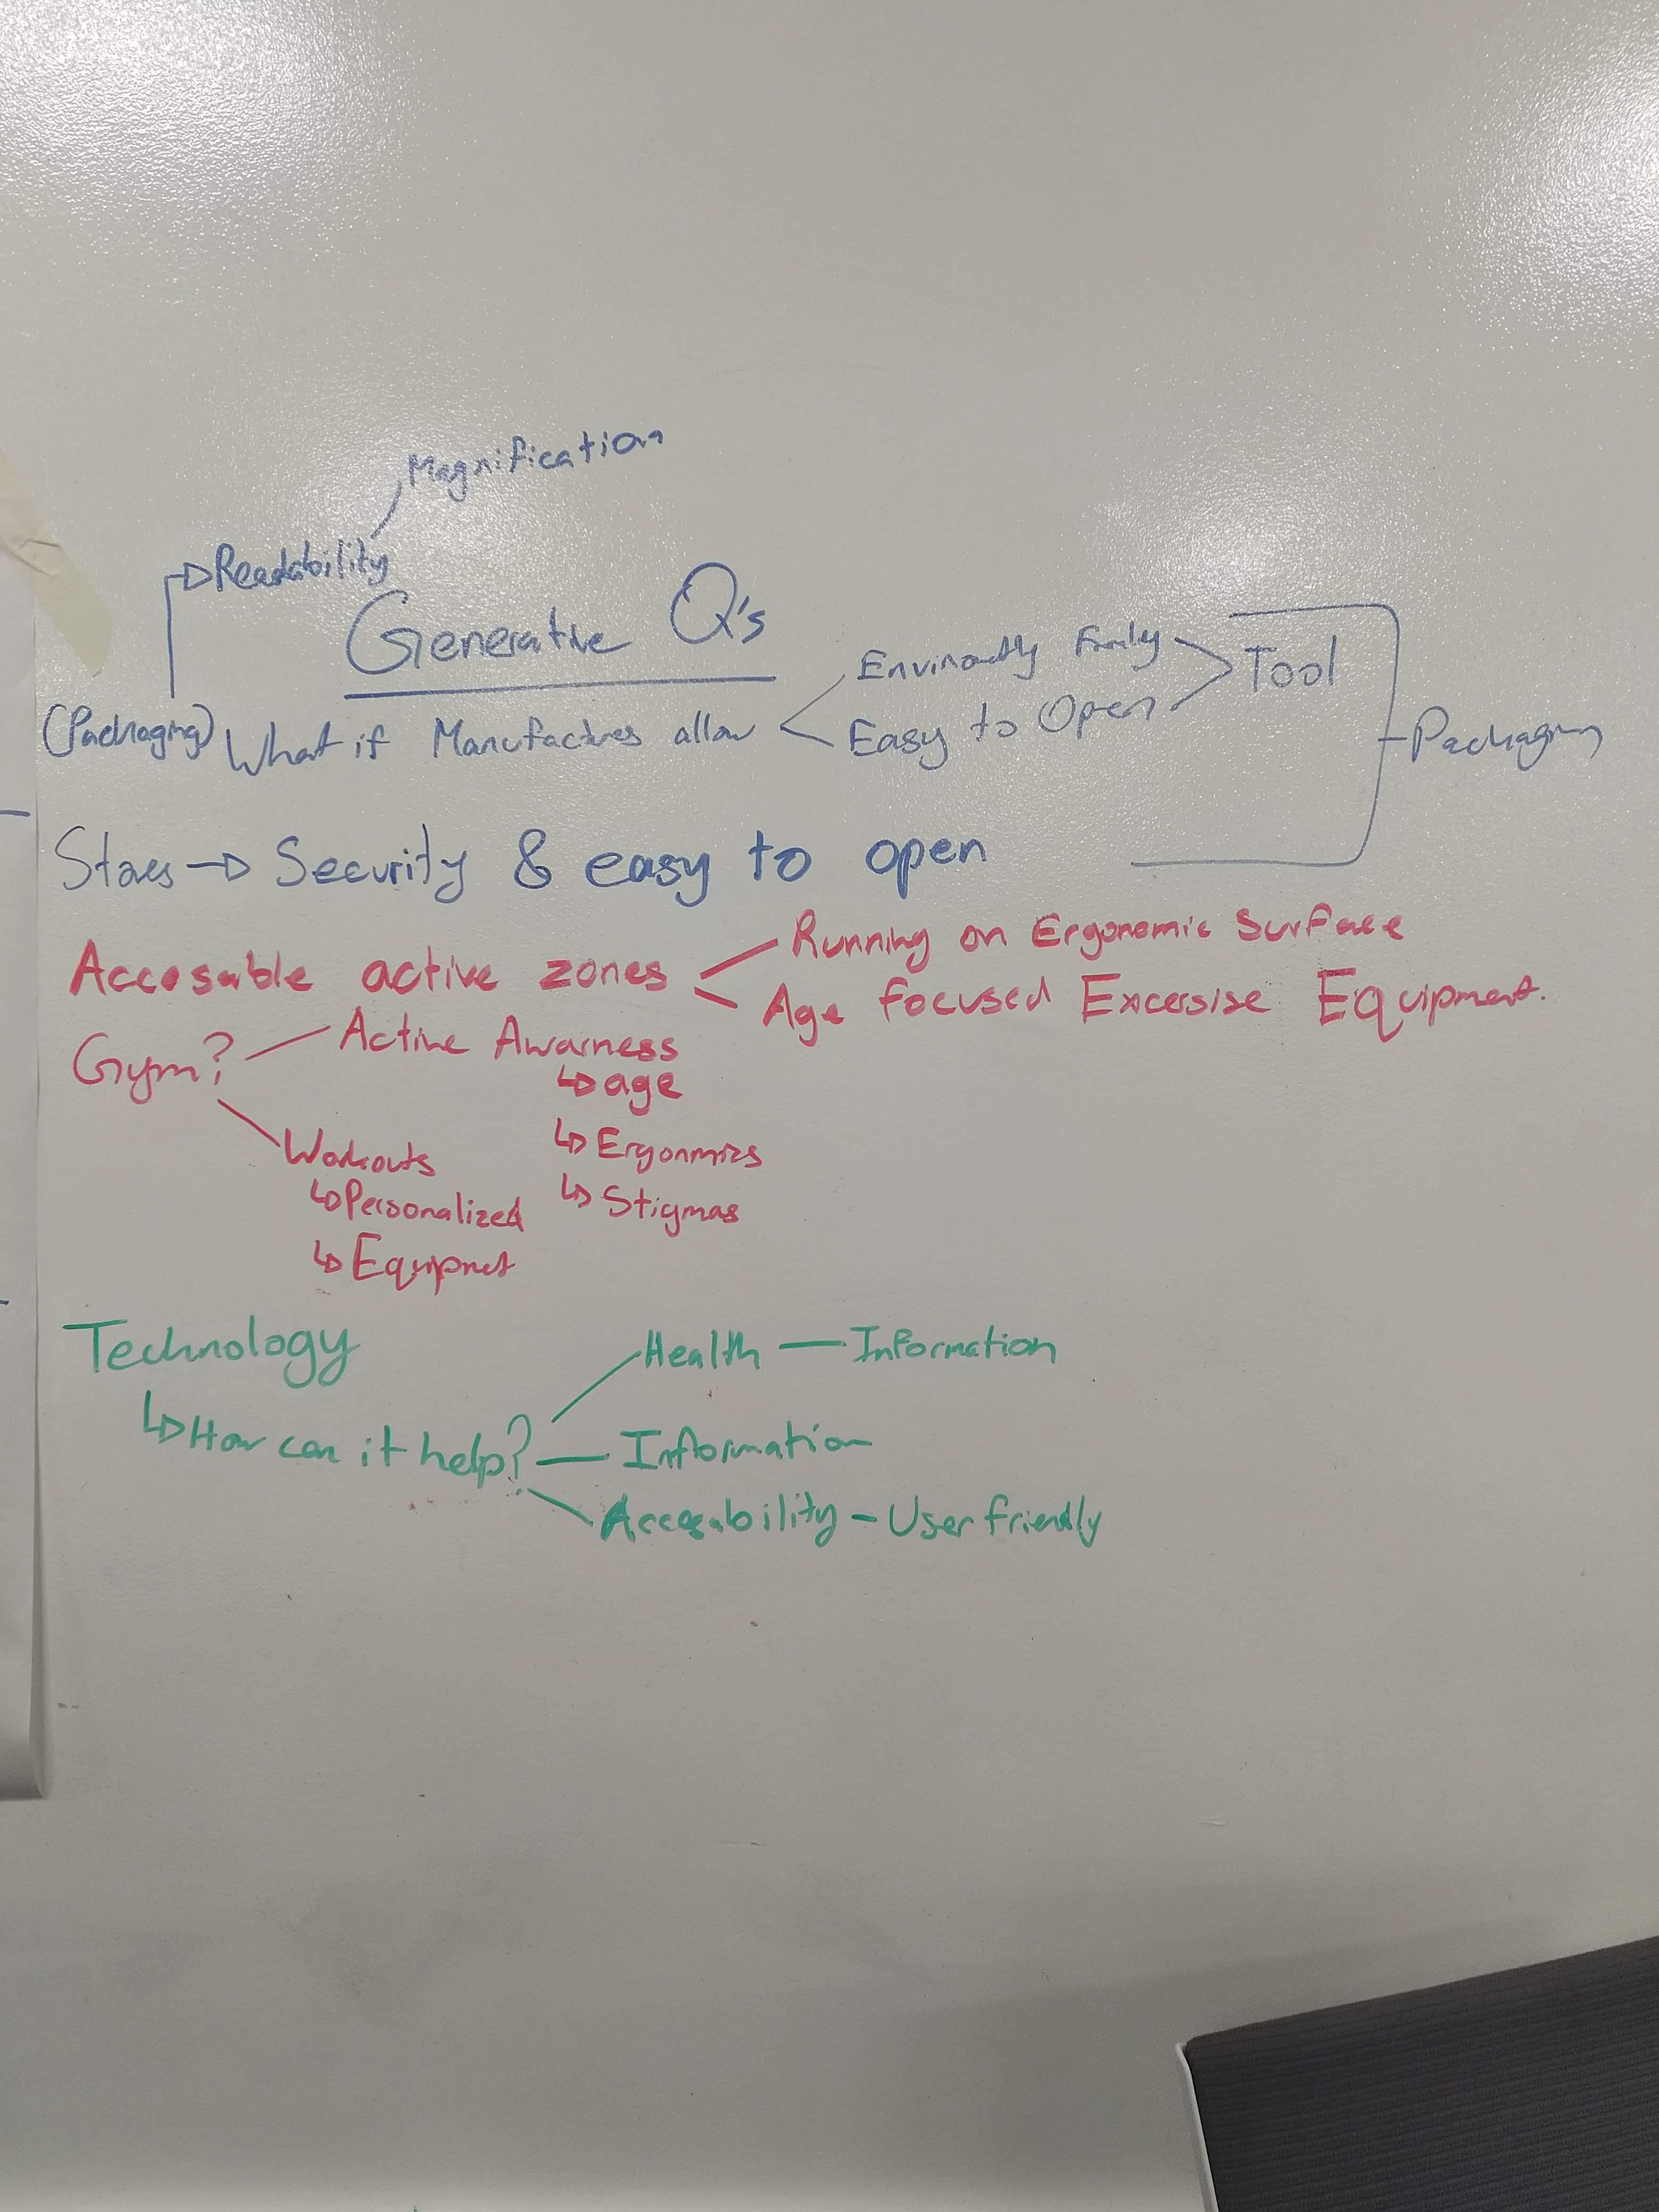 Magnification
Readability
Generative Q's
(Packaging) What if Manufactures allow
Envirnomtly Frindly
Easy to Open
Tool
Packaging
Stores → Security & easy to open
Accesable active zones
Running on Ergonomic Surface
Age Focused Excersise Equipment.
Gym?
Active Awarness
↳ age
↳ Ergonmics
↳ Stigmas
Workouts
↳ Personalized
↳ Equipmet
Technology
↳ How can it help?
Health — Information
— Information
Accesability - User friendly